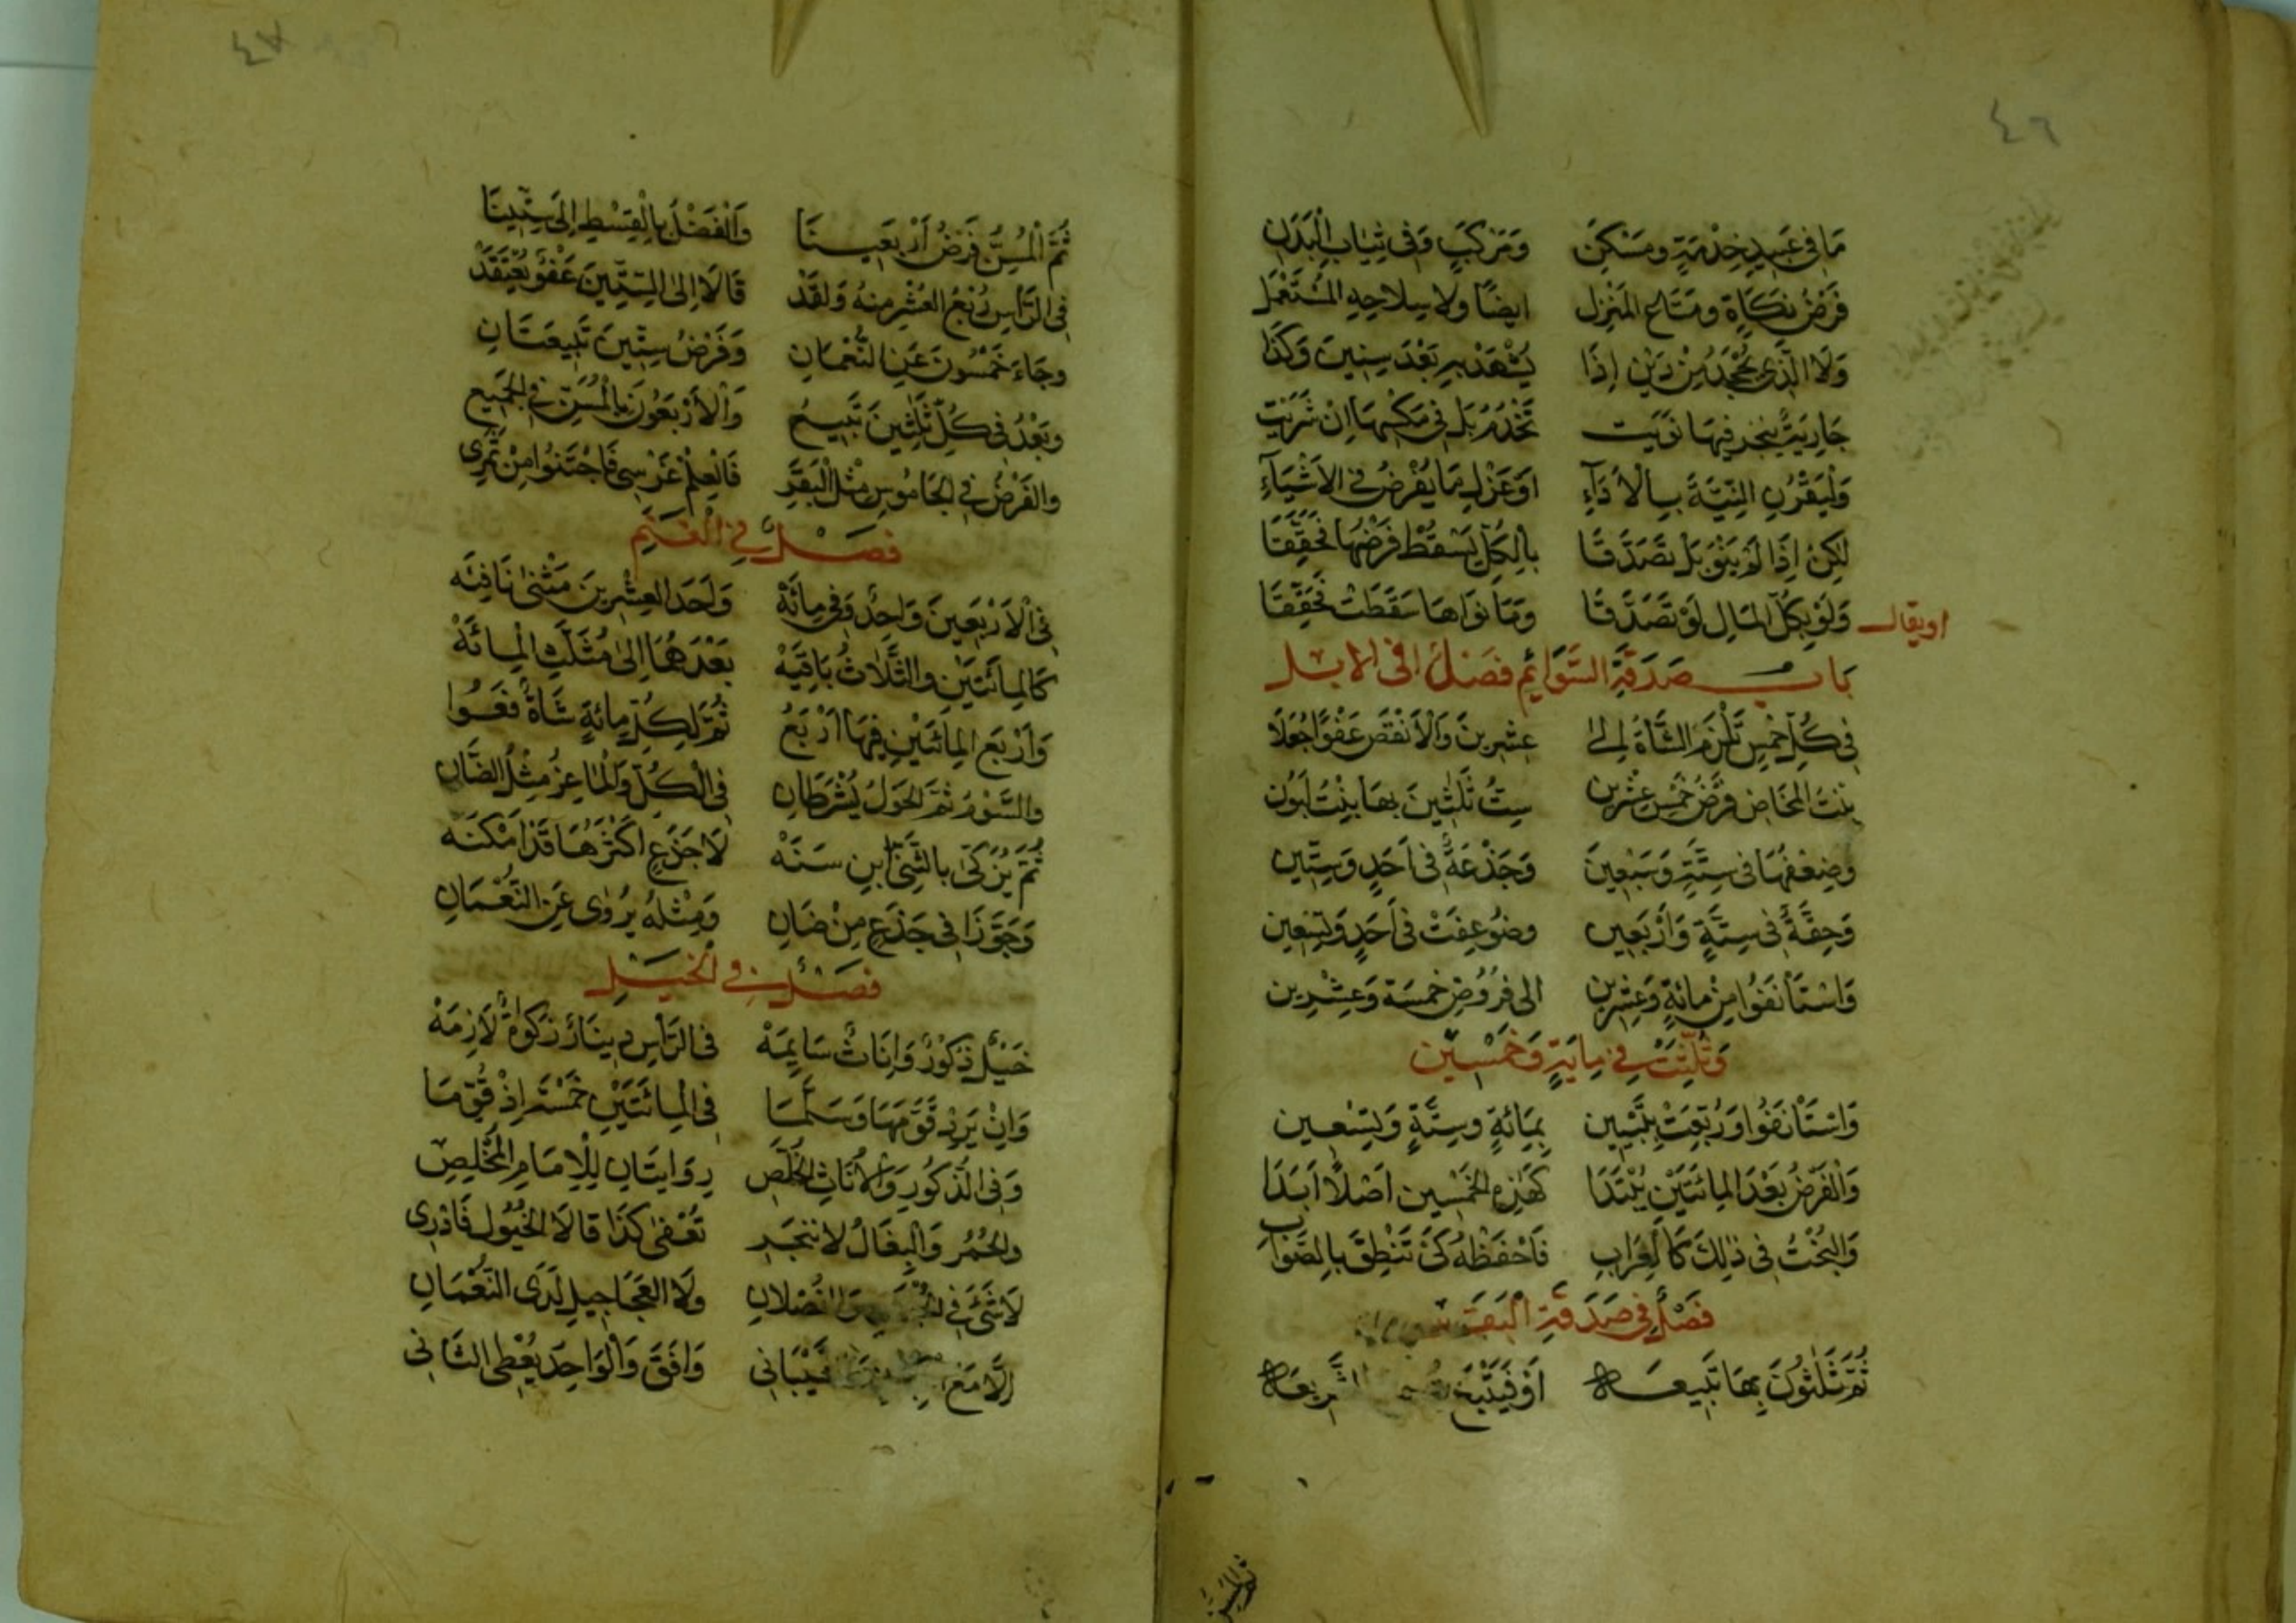 ٤٦
مَا فِي عَبِيدِ خِدْمَةٍ وَمَسْكَنِ وَمَرْكَبٍ وَفِي ثِيَابِ الْبَدَنِ
فَرْضُ زَكَاةٍ وَمَتَاعِ المَنْزِلِ ايضًا ولا سِلاحِهِ المُسْتَعْمَلِ
وَلَا الَّذِي يُجْحَدُ مِنْ دَيْنٍ إِذَا يُشْهَدْ بِهِ بَعْدَ سِنِينَ وَكَذَا
جَارِيَةٌ يَتْجُرُ فِيهَا نَوَيَتْ تَخْدُمُ بَلْ فِي عَكْسِهَا اِنْ شُرِيَتْ
وَلْيَقْرُنِ النِّيَّةَ بِالْأَدَاءِ اوْ عَزْلِ مَا يُفْرَضُ فِي الاَشْيَآءِ
لكِنْ اِذَا لَمْ يَنْوِ بَلْ تَصَدَّقَا بِالكُلِّ يَسْقُطْ فَرْضُهَا مُحَقَّقَا
اويقال
وَلَوْ بِكُلِّ المَالِ لَوْ تَصَدَّقَا وَمَا نَوَاهَا سَقَطَتْ مُحَقَّقَا
بَابُ صَدَقَةِ السَّوَائِمِ فَصْلٌ في الابل
فِي كُلِّ خَمْسٍ تَلْزَمُ الشَّاةُ اِلى عِشْرِينَ وَالْاَنْقَصَ عَفْوًا جُعِلَا
بِنْتُ المَخَاضِ فَرْضُ خَمْسِ عِشْرِينِ سِتُّ ثَلٰثِينَ بِهَا بِنْتُ لَبُونِ
وَضِعْفُهَا فِي سِتَّةٍ وَسَبْعِينَ وَجَذْعَةٌ فِي اَحَدٍ وَسِتِّينِ
وَحِقَّةٌ فِي سِتَّةٍ وَاَرْبَعِينِ وَضُوعِفَتْ فِي اَحَدٍ وَتِسْعِينِ
وَاسْتَأْنَفُوا مِنْ مِائَةٍ وَعِشْرِينِ الى فُرُوضِ خَمْسَةٍ وَعِشْرِينِ
وَثُلِّثَتْ فِي مِايَةٍ وَخَمْسِينَ
وَاسْتَأْنَفُوا وَرُبِّعَتْ بِمِائَةٍ وسِتَّةٍ وَتِسْعِينِ
وَالْفَرْضُ بَعْدَ المِائَتَيْنِ يُبْتَدَا كَهٰذِهِ الخَمْسِينِ اَصْلًا اَبَدَا
وَالبُخْتُ فِي ذٰلِكَ كَالعِرَابِ فَاحْفَظْهُ كَيْ تَنْطِقَ بِالصَّوَابِ
فَصْلٌ فِي صَدَقَةِ الْبَقَرِ
ثُمَّ ثَلٰثُونَ بِهَا تَبِيعَه اَوْ فَتَبِيعٌ الشَّرِيعَه
٤٧
ثُمَّ الْمُسِنُّ فَرْضُ اَرْبَعِينَا وَالْفَضْلُ بِالْقِسْطِ اِلَى سِتِّينَا
فِي الرَّأْسِ رُبْعُ العُشْرِ مِنْهُ وَلَقَدْ قَالَا اِلَى السِّتِّينَ عَفْوٌ يُعْتَقَدْ
وجَاءَ خَمْسُونَ عَنِ النُّعْمَانِ وَفَرْضُ سِتِّينَ تَبِيعَتَانِ
وَبَعْدُ فِي كُلِّ ثَلٰثِينَ تَبِيعُ وَالْأَرْبَعُونَ بِالْمُسِنِّ فِي الْجَمِيعِ
والفَرْضُ فِي الجَامُوسِ مِثْلُ الْبَقَرِ فَالْعِلْمُ غَرْسِي فَاجْتَنُوا مِنْ ثَمَرِي
فَصْلٌ فِي الْغَنَمِ
فِي الْاَرْبَعِينَ وَاحِدٌ وَفِي مِائَهْ وَاَحَدَ العِشْرِينَ مَثْنًى نَافِيَه
كَالمِائَتَيْنِ والثَّلَاثُ بَاقِيَهْ بَعْدَهُمَا اِلَى مُثَلَّثِ الْمِائَهْ
وَاَرْبَعُ المِائَتَيْنِ فِيهَا اَرْبَعُ ثُمَّ لِكُلِّ مِائَةٍ شَاةٌ فَعُوا
والسَّوْمُ ثُمَّ الحَوْلُ يُشْرَطَانِ فِي الْكُلِّ وَالمَاعِزُ مِثْلُ الضَّانِ
ثُمَّ يُزَكّٰى بِالثَّنِيِّ ابْنِ سَنَهْ لَا جَذَعٍ اَكْثَرُهَا قَدْ اَمْكَنَهْ
وَجَوَّزَا فِي جَذَعٍ مِنْ ضَانِ وَمِثْلُهُ يُرْوٰى عَنِ النُّعْمَانِ
فَصْلٌ فِي الْخَيْلِ
خَيْلٌ ذُكُورٌ وَاِنَاثٌ سَايِمَهْ فِي الرَّأْسِ دِينَارٌ زَكٰوةٌ لَازِمَهْ
وَاِنْ يَرِدْ قَوَّمَهَا وَسَلَّمَا فِي الْمِائَتَيْنِ خَمْسَةً اِذْ قُوِّمَا
وَفِي الذُّكُورِ وَالْاُنَاثِ الْخُلَّصِ رِوَايَتَانِ لِلْاِمَامِ الْمُخْلِصِ
والحُمُرُ وَالْبِغَالُ لَا لِمَتْجَرِ تُعْفٰى كَذَا قَالَا الخُيُولُ فَادْرِي
لَا شَيْءَ فِي وَالفُصْلَانِ وَلَا العَجَاجِيلِ لَدَى النُّعْمَانِ
اِلَّا مَعَ وَافَقَ وَالْوَاحِدَ يُعْطِي الثَّانِي